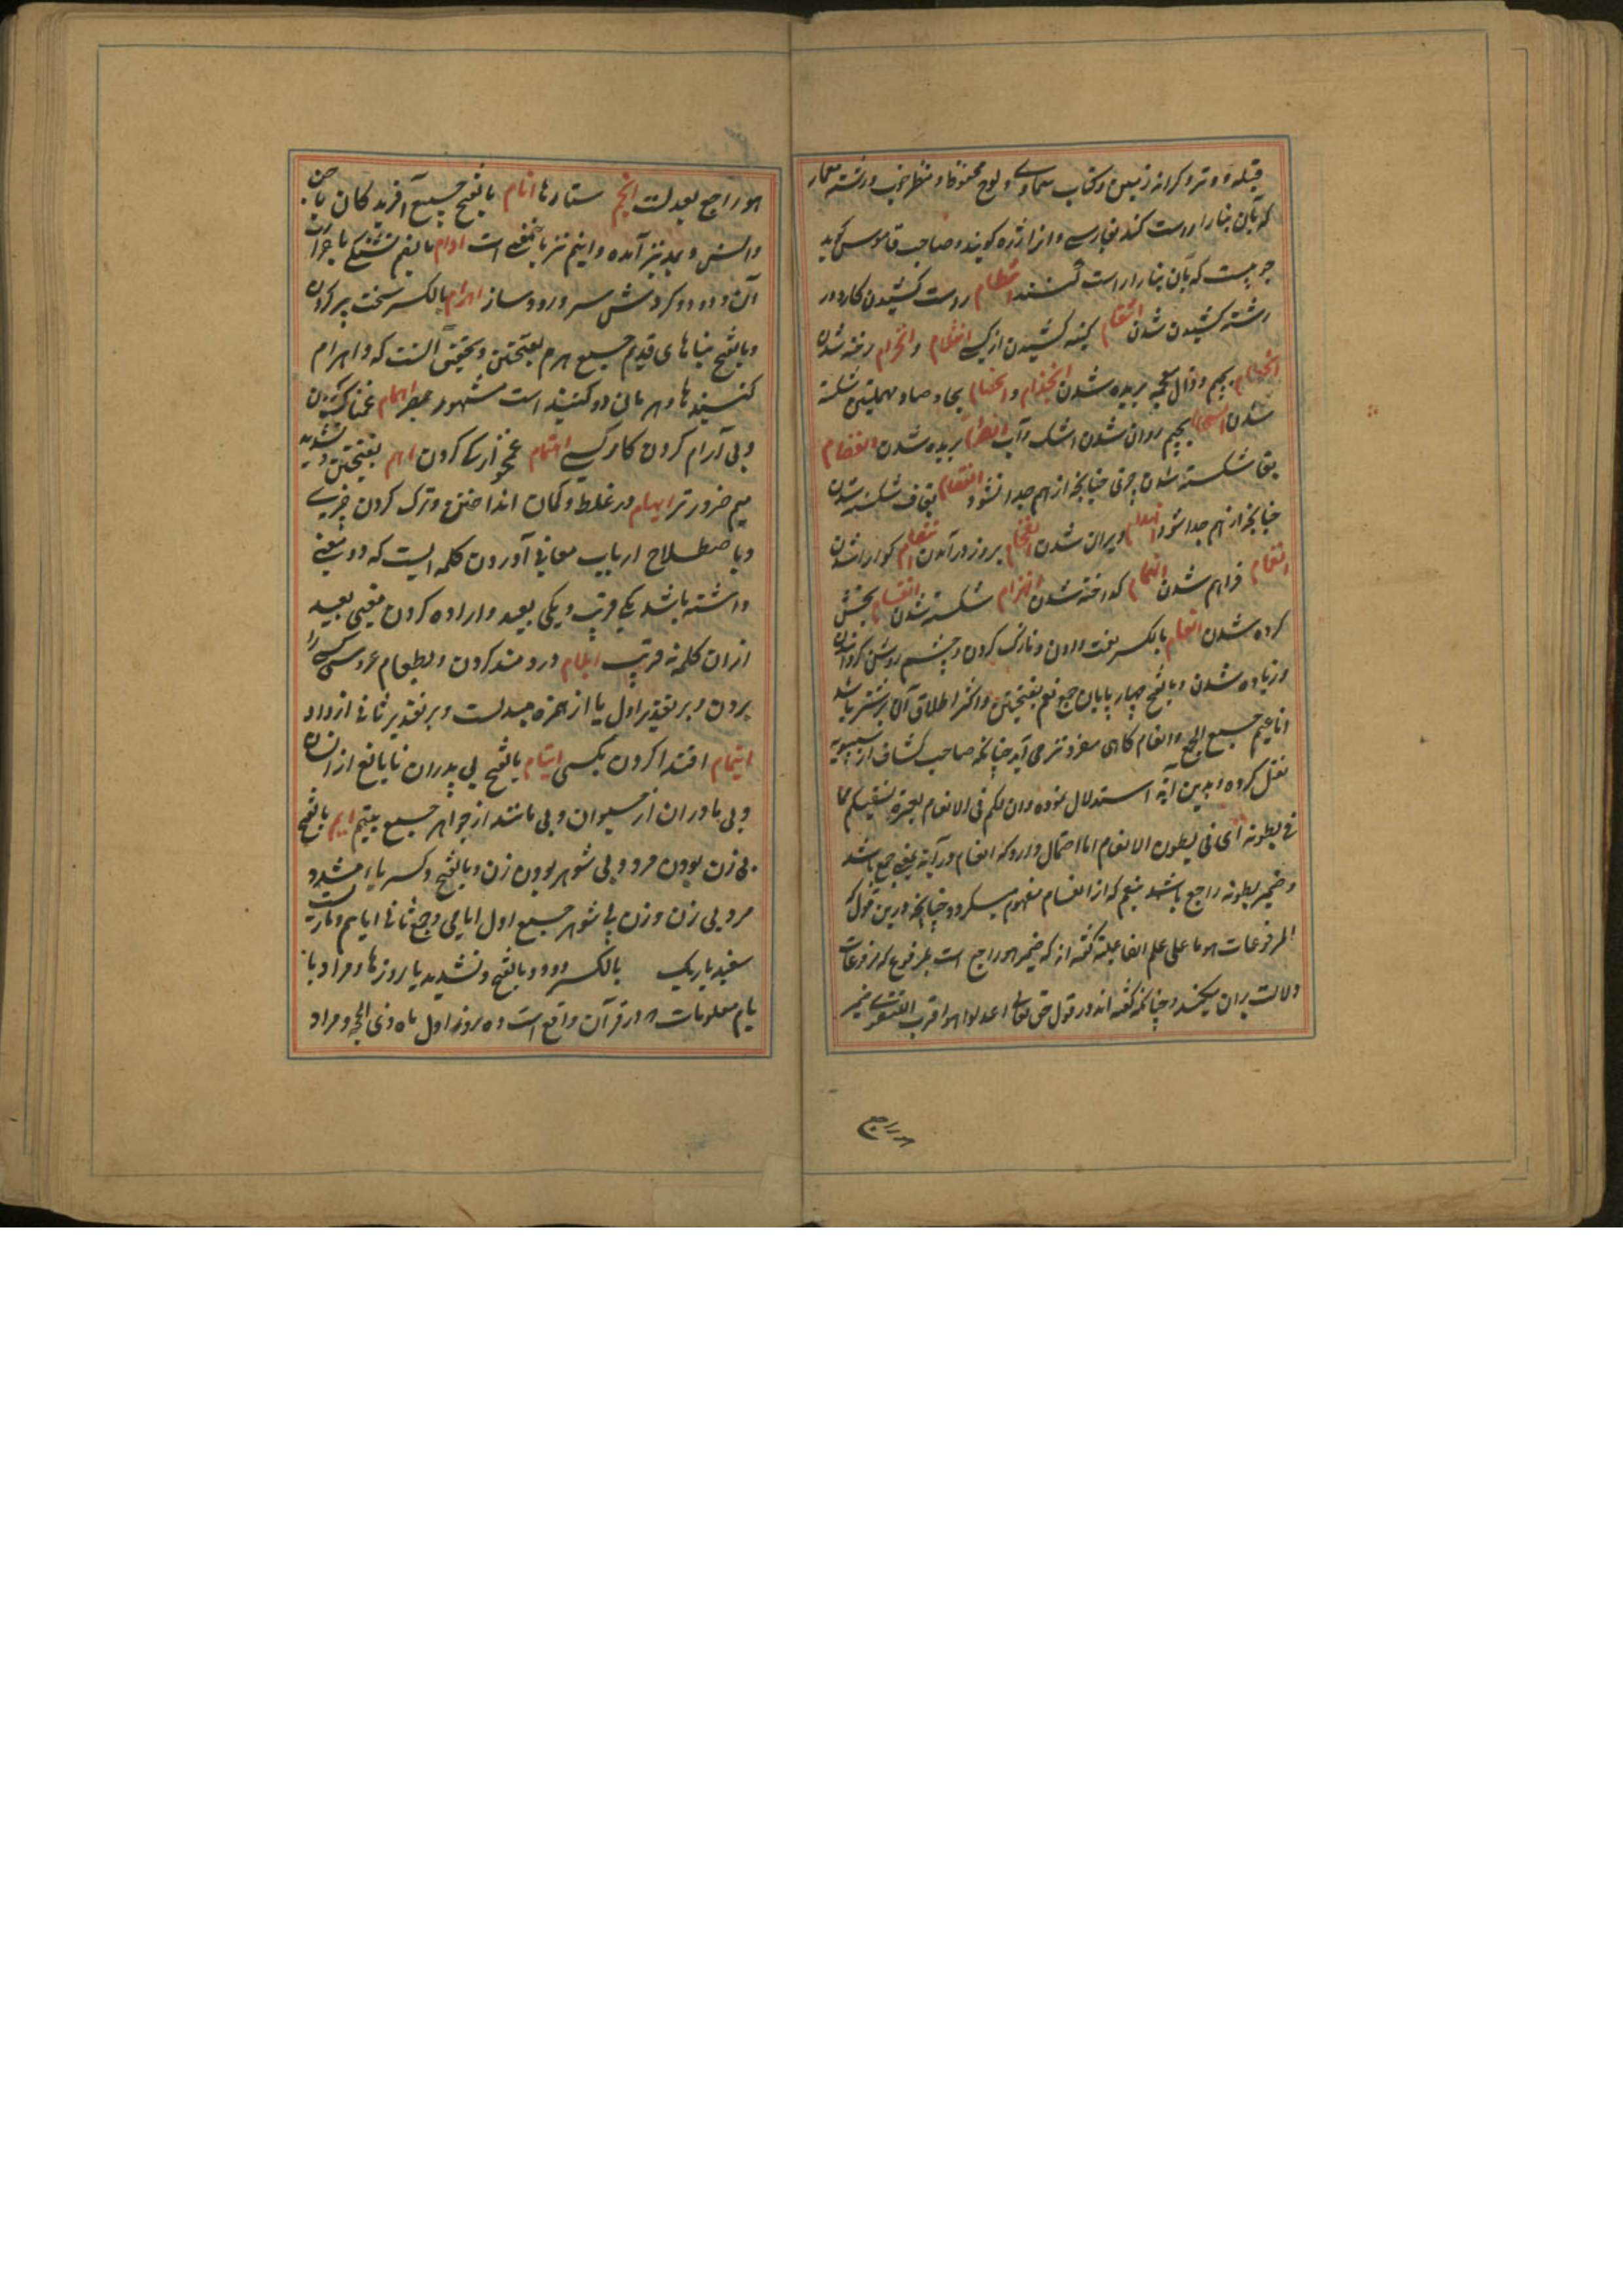 قبله و وتر و کرانه زمین و کتاب سماوی و لوح محفوظ و منظر خوب و رشته معمار
که بآن بنا را درست کند بفارسی و انرا تره کویند و صاحب قاموس کوید
چوبیست که بآن بنا را راست کنند انتظام راست کشیدن کار و در
رشته کشیدن شدن انتقام کینه کشیدن از کسی انثلام و انخرام رخنه شدن
انجذام بجیم و ذال معجمه بریده شدن انخذام و انحصام بحا و صاد مهملتین شکسته
شدن انسجام بجیم روان شدن اشک و آب انصرام بریده شدن انفصام
بفا شکسته شدن چیزی چنانچه از هم جدا نشود انقصام بقاف شکسته شدن
چنانچه از هم جدا شود انهدام ویران شدن انقحام بزور درآمدن انهضام کوارا شدن
انضمام فراهم شدن انهمام کداخته شدن انهزام شکسته شدن انقسام بخش
کرده شدن انعام بالکسر نعمت دادن و نازک کردن و چشم روشن کردن
و زیاده شدن و بالفتح چهار پایان جمع نعم بفتحتین و اکثر اطلاق آن بر شتر باشد
اناعیم جمع الجمع و انعام کاهی مفرد نیز می آید چنانچه صاحب کشاف از سیبویه
نقل کرده و بدین آیه استدلال نموده وان لکم فی الانعام لعبرة نسقیکم مما
فی بطونه ای فی بطون الانعام اما احتمال دارد که انعام در آیه بمعنی جمع باشد
و ضمیر بطونه راجع باشد بنعم که از انعام مفهوم میکردد چنانچه درین قول که
المرفوعات هو ما علی علم الفاعلیة کفته اند که ضمیر هو راجع است بمرفوع که مرفوعات
دلالت بران میکند و چنانچه کفته اند در قول حق تعالی اعدلوا هو اقرب للتقوی ضمیر
هو راجع
هو راجع بعدلست انجم ستارها انام بالفتح جمیع آفریدکان یا جن
وانس و بمد نیز آمده و انیم نیز باین معنی است اوام بالضم تشنکی یا حرارت
آن و دود و کردش سر و رود ساز اهرام بالکسر سخت پیر کردن
و بالفتح بناهای قدیم جمیع هرم بفتحتین و تحقیق آنست که و اهرام
کنبدها و هرمان دو کنبد است مشهور بمصر اهمام غمناک کردن
و بی آرام کردن کار کسی اهتمام غمخوارکی کردن اهم بفتحتین و تشدید
میم ضرورتر ایهام در غلط و کمان انداختن و ترک کردن چیزی
و باصطلاح ارباب معانی آوردن کلمه ایست که دو معنی
داشته باشد یکی قریب و یکی بعید و اراده کردن معنی بعید
ازان کلمه نه قریب ایلام دردمند کردن و بطعام عروسی کسی را
بردن و بر تقدیر اول یا از همزه مبدلست و بر تقدیر ثانی از واو
ایتمام اقتدا کردن بکسی ایتام بالفتح بی پدران نابالغ از انسان
و بی مادران از حیوان و بی مانند از جواهر جمیع یتیم ایم بالفتح
بی زن بودن مرد و بی شوهر بودن زن و بالفتح و کسر یاء مشدد
مرد بی زن و زن بی شوهر جمیع اول ایامی و جمع ثانی ایایم و ماریست
سفید باریک بالکسر دود و بالفتح و تشدید یا روزها و مراد با
یام معلومات که در قرآن واقع است ده روز اول ماه ذی الحجه و مراد